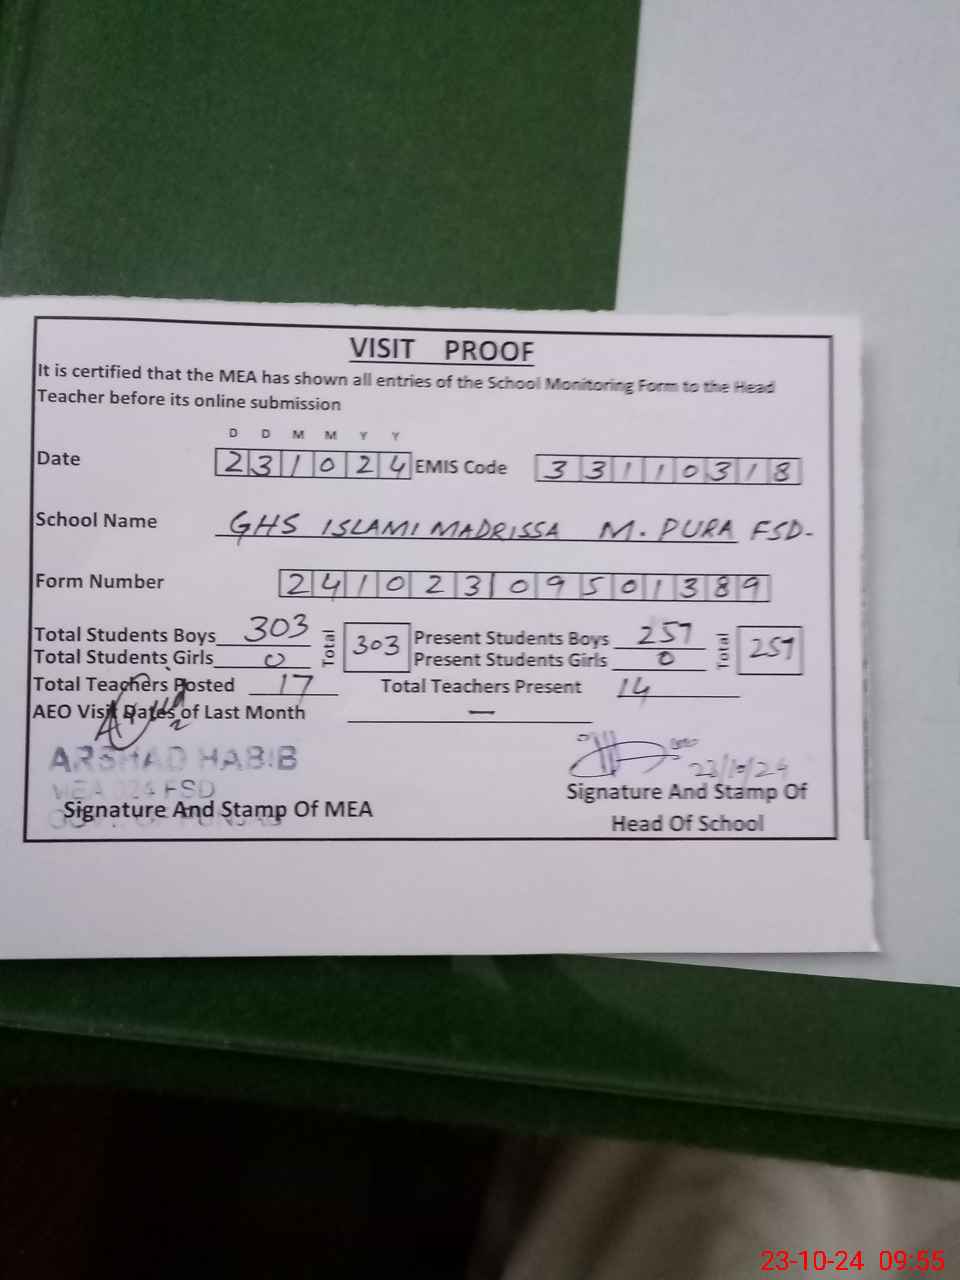 VISIT PROOF
It is certified that the MEA has shown all entries of the School Monitoring Form to the Head
Teacher before its online submission
D D M M Y Y
Date 231024 EMIS Code 33110318
School Name GHS ISLAMI MADRISSA M. PURA FSD-
Form Number 24102309501389
Total Students Boys 303 Total 303 Present Students Boys 257 Total 257
Total Students Girls 0 Present Students Girls 0
Total Teachers Posted 17 Total Teachers Present 14
AEO Visit Dates of Last Month —
ARSHAD HABIB
MEA 024 FSD 23/10/24
Signature And Stamp Of MEA Signature And Stamp Of
Head Of School
23-10-24 09:55